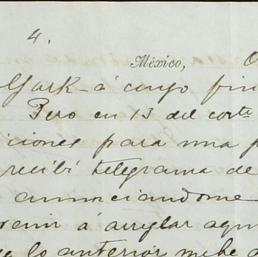 4.
México,
York - á cuyo fin
Pero en 13 del corte
iciones para una p
recibí telegrama de
anunciandome
venir á arreglar aqu
lo anterior me he